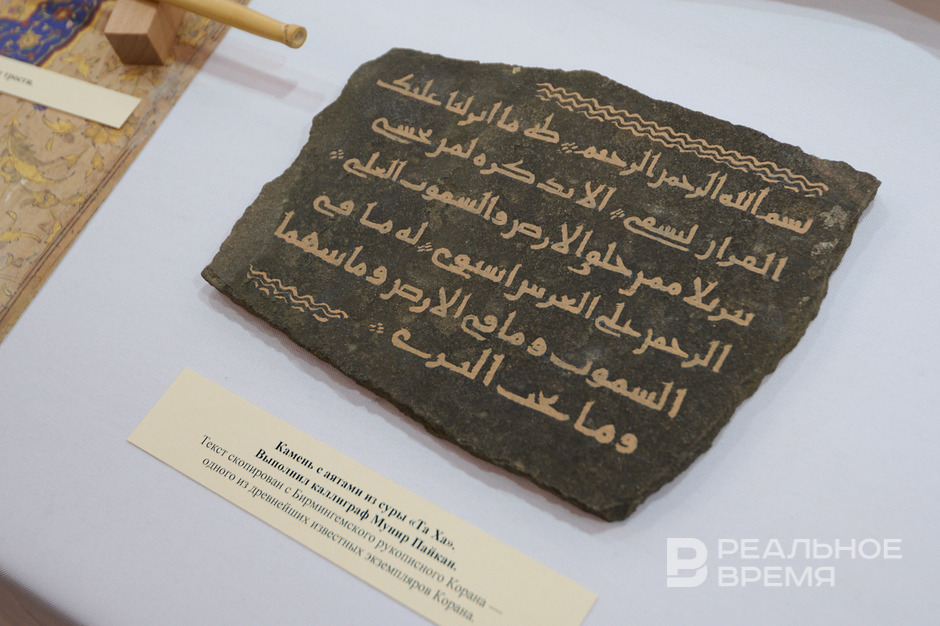 трости.
بسم الله الرحمن الرحيم طه ما انزلنا عليك
القران لتشقى الا تذكره لمن يخشى
تنزيلا ممن خلق الارض والسموت العلى
الرحمن على العرش استوى له ما في
السموت وما في الارض وما بينهما
وما تحت الثرى
Камень с аятами из суры «Та Ха».
Выполнил каллиграф Мунир Пайкан.
Текст скопирован с Бирмингемского рукописного Корана —
одного из древнейших известных экземпляров Корана.
РЕАЛЬНОЕ
ВРЕМЯ